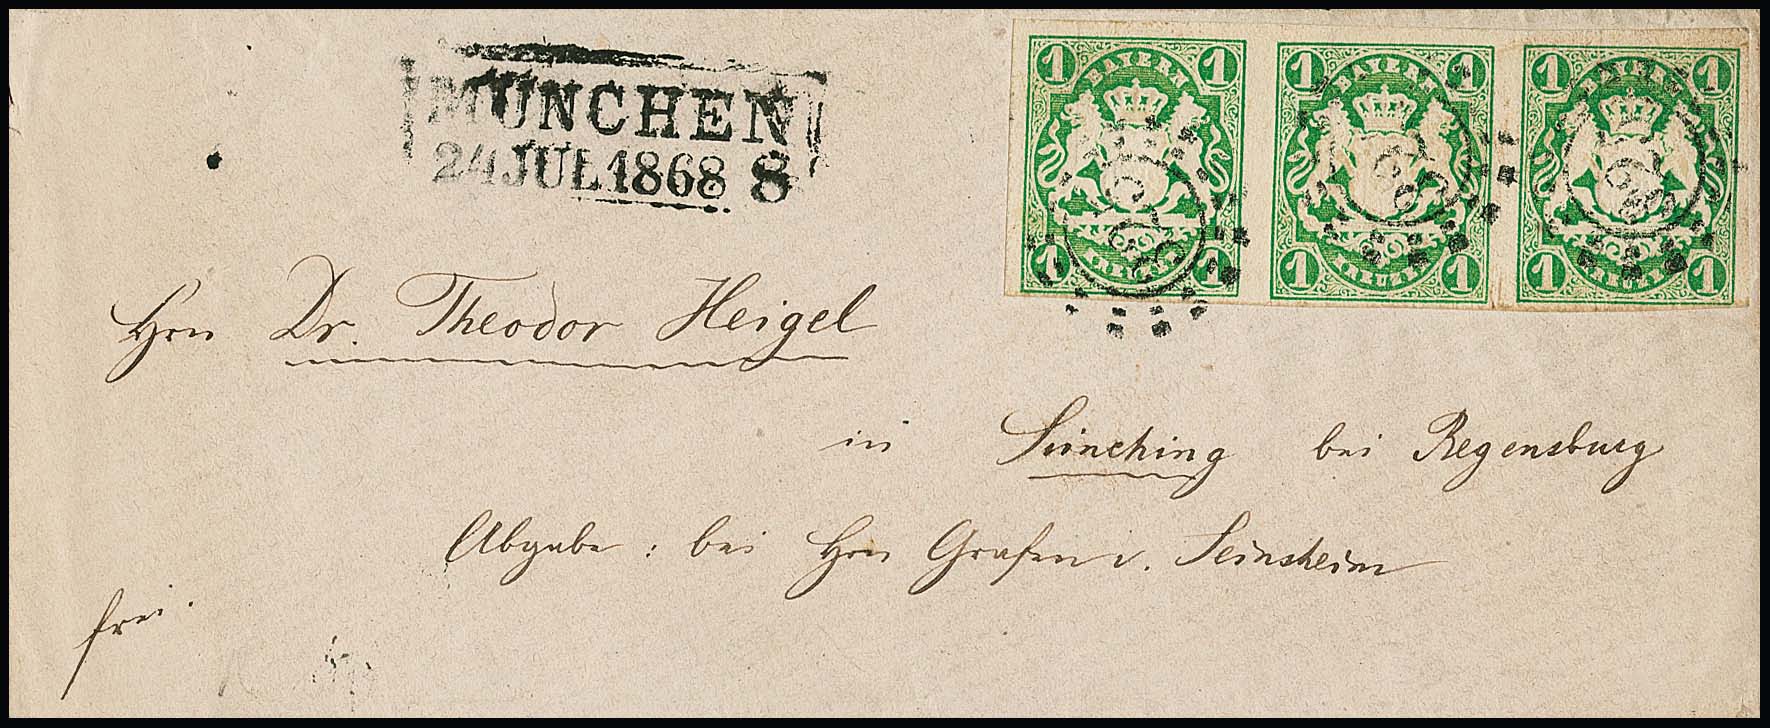 MÜNCHEN
24 JUL 1868 8
1 1 1 1 1 1
BAYERN BAYERN BAYERN
1 1 1 1 1 1
KREUZER KREUZER KREUZER
Hrn Dr. Theodor Heigel
in Sünching bei Regensburg
Abgabe: bei Hrn Grafen v. Seinsheim
frei.